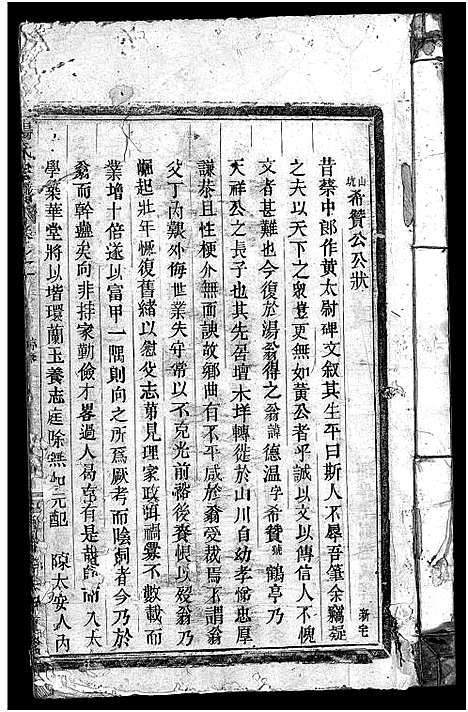 山坑 希贊公公狀
昔蔡中郎作黃太尉碑文叙其生平曰斯人不辱吾筆余竊疑
之夫以天下之衆豈更無如黃公者乎誠以文以傳信人不愧
文者甚難也今復於湯翁得之翁諱德溫字希贊號鶴亭乃
天祥公之長子也其先居壇木坪轉徙於山川自幼孝悌忠厚
謙恭且性梗介無面諛故鄉曲有不平咸於翁受裁焉不謂翁
父丁內艱外侮世業失守常以不克光前裕後賫恨以歿翁乃
崛起壯年恢復舊緒以慰父志第見理家政弭禍釁不數載而
業增十倍遂以富甲一隅則向之所為厥考而陰飼者今乃於
翁而幹蠱矣向非持家勤儉才畧過人曷克有是哉 入太
學築華堂將以堦環蘭玉養志庭除無如元配 陳太安人內
新宅